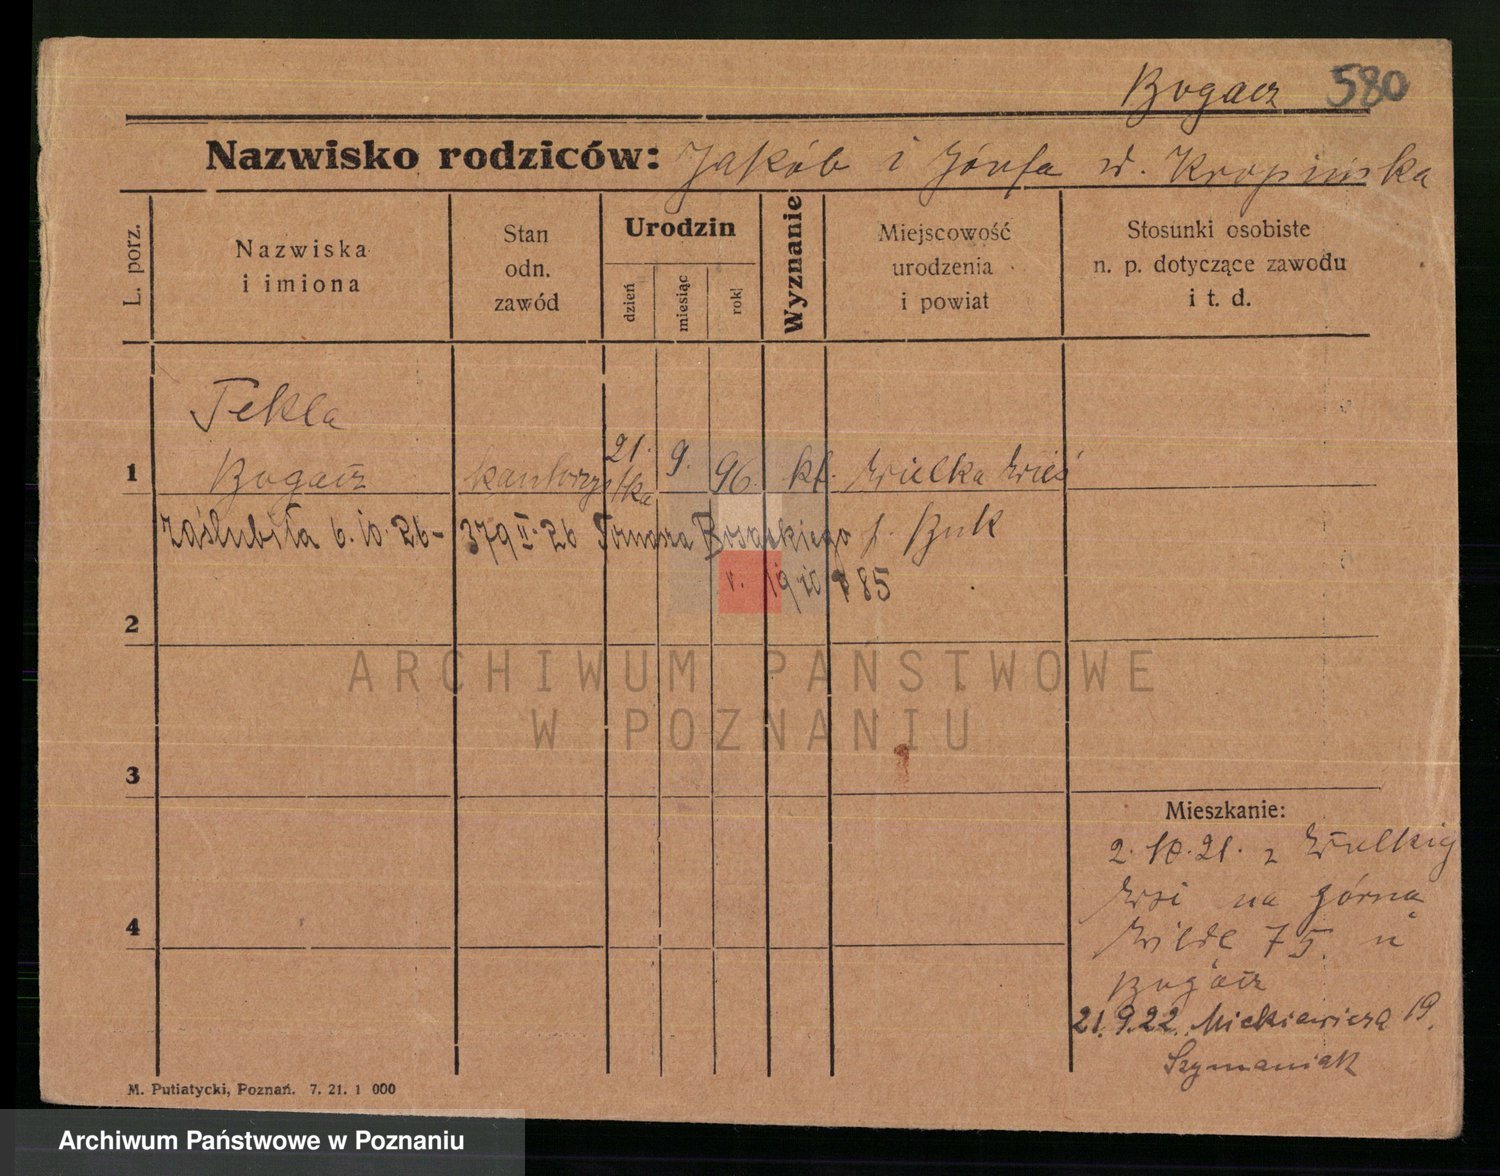 Bogacz 580
Nazwisko rodziców: Jakób i Józefa d. Kropińska
L. porz.
Nazwiska
i imiona
Stan
odn.
zawód
Urodzin
dzień
miesiąc
rok
Wyznanie
Miejscowość
urodzenia
i powiat
Stosunki osobiste
n. p. dotyczące zawodu
i t. d.
Tekla
1 Bogacz kantorzystka 21. 9. 96. kt. Wielka Wieś
zaślubiła 6. 10. 26 - 379 II. 26 Tomasza p. Buk
85
2
ARCHIWUM PAŃSTWOWE
W POZNANIU
3
Mieszkanie:
2. 10. 21. z Wielkiej
Wsi na Górna
4 Wilde 75. u
Bogacz
21. 9. 22. Mickiewicza 19.
Szymaniak
M. Putiatycki, Poznań. 7. 21. 1 000
Archiwum Państwowe w Poznaniu